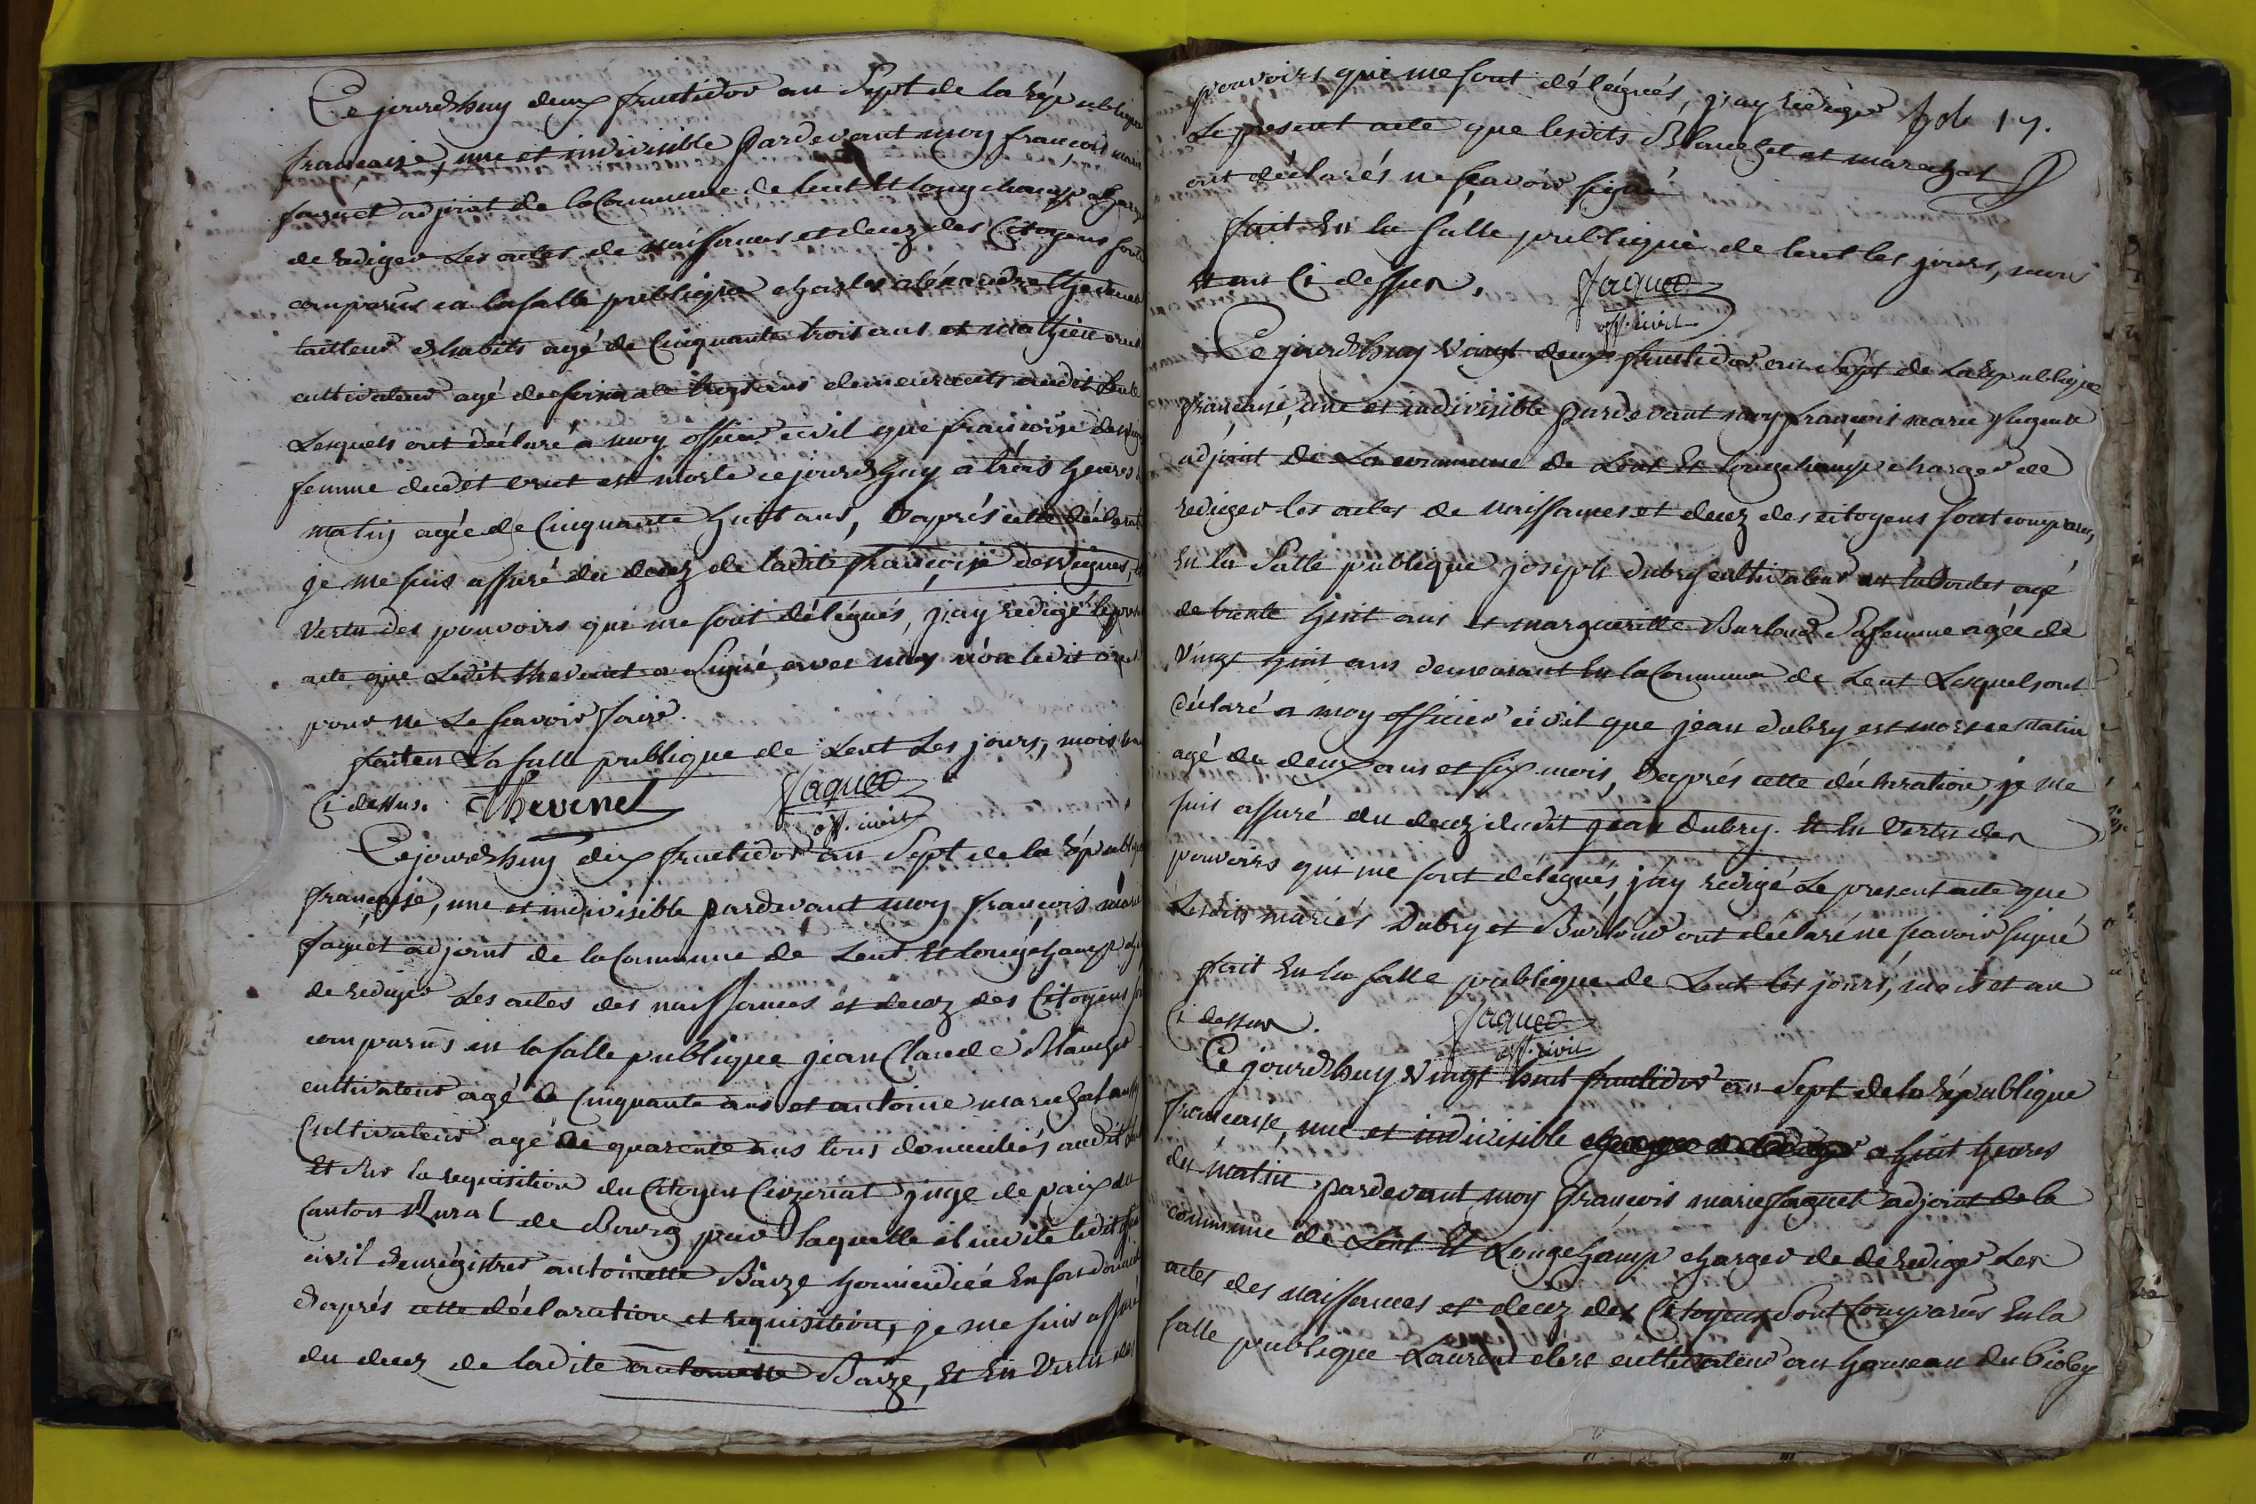 Ce jourdhuy deux fructidor an Sept de la République
française, une et indivisible pardevant moy françois marie
faguet adjoint de la Commune de lent et longchamp chargé
de rediger les actes de naissances et decez des Citoyens sont
comparus en la salle publique charles aléxandre thevenet
tailleur dhabits agé de Cinquante trois ans et mathieu
cultivateur agé de ans demeurants audit lent
Lesquels ont déclaré a moy officier civil que françoise desvignes
femme dudit est morte cejourdhuy a trois heures
matin agée de Cinquante huit ans, Daprés cette déclarat
je me suis assuré du decez de ladite françoise desvignes,
Vertu des pouvoirs qui me sont délégués, jay redigé le present
acte que Ledit thevenet a Signé avec moy non ledit
pour ne Le scavoir faire.
fait en La salle publique de Lent Les jours, mois
Ci dessus. Thevenet faguet
off. civil
Cejourdhuy dix fructidor an Sept de la République
française, une et indivisible pardevant moy françois marie
faguet adjoint de la Commune de Lent et Longchamp
de rediger Les actes des naissances et decez des Citoyens
comparus en la salle publique jean Claude Blanchet
cultivateur agé de Cinquante ans et antoine marechal aussy
Cultivateur agé de quarente ans tous domiciliés audit
Et Sur la requisition du Citoyen juge de paix du
Canton Rural de Bourg par laquelle il invite ledit
civil denrégistrer antoinette Baize homicidiée En son domicile
Daprés cette déclaration et requisition, je me suis assuré
du decez de ladite antoinette Baize, Et En Vertu des
pouvoirs qui me sont délégués, jay redigé fol 17.
Le present acte que lesdits Blanchet et marechal
ont déclarés ne scavoir signé
fait En la salle publique de lent les jours, mois
et an Ci dessus. faguet
off. civil
Ce jourdhuy Vingt deux fructidor an Sept de La République
française, une et indivisible pardevant moy françois marie faguet
adjoint de La commune de Lent Et Longchamp charger de
rediger les actes de naissances et decez des citoyens sont comparus,
En la Salle publique joseph Dubry cultivateur agé
de trente huit ans et margueritte Burtoud Sa femme agée de
Vingt huit ans demeurant En la Commune de Lent Lesquels ont
déclaré a moy officier civil que jean Dubry est mort ce matin
agé de deux ans et six mois, Daprés cette déclaration, je me
suis assuré du decez dudit jean Dubry. Et En Vertu des
pouvoirs qui me sont délégués, jay redigé Le present acte que
Lesdits mariés Dubry et Burtoud ont déclaré ne scavoir signé
fait En la salle publique de Lent les jours, mois et an
Ci dessus. faguet
off. civil
Ce jourdhuy Vingt huit fructidor an Sept de la République
francaise, une et indivisible a huit heures
du matin pardevant moy françois marie faguet adjoint de la
commune de Lent Et Longchamp charger de de rediger Les
actes des naissances et decez des Citoyens Sont Comparus En la
salle publique Laurent clerc cultivateur au hameau du